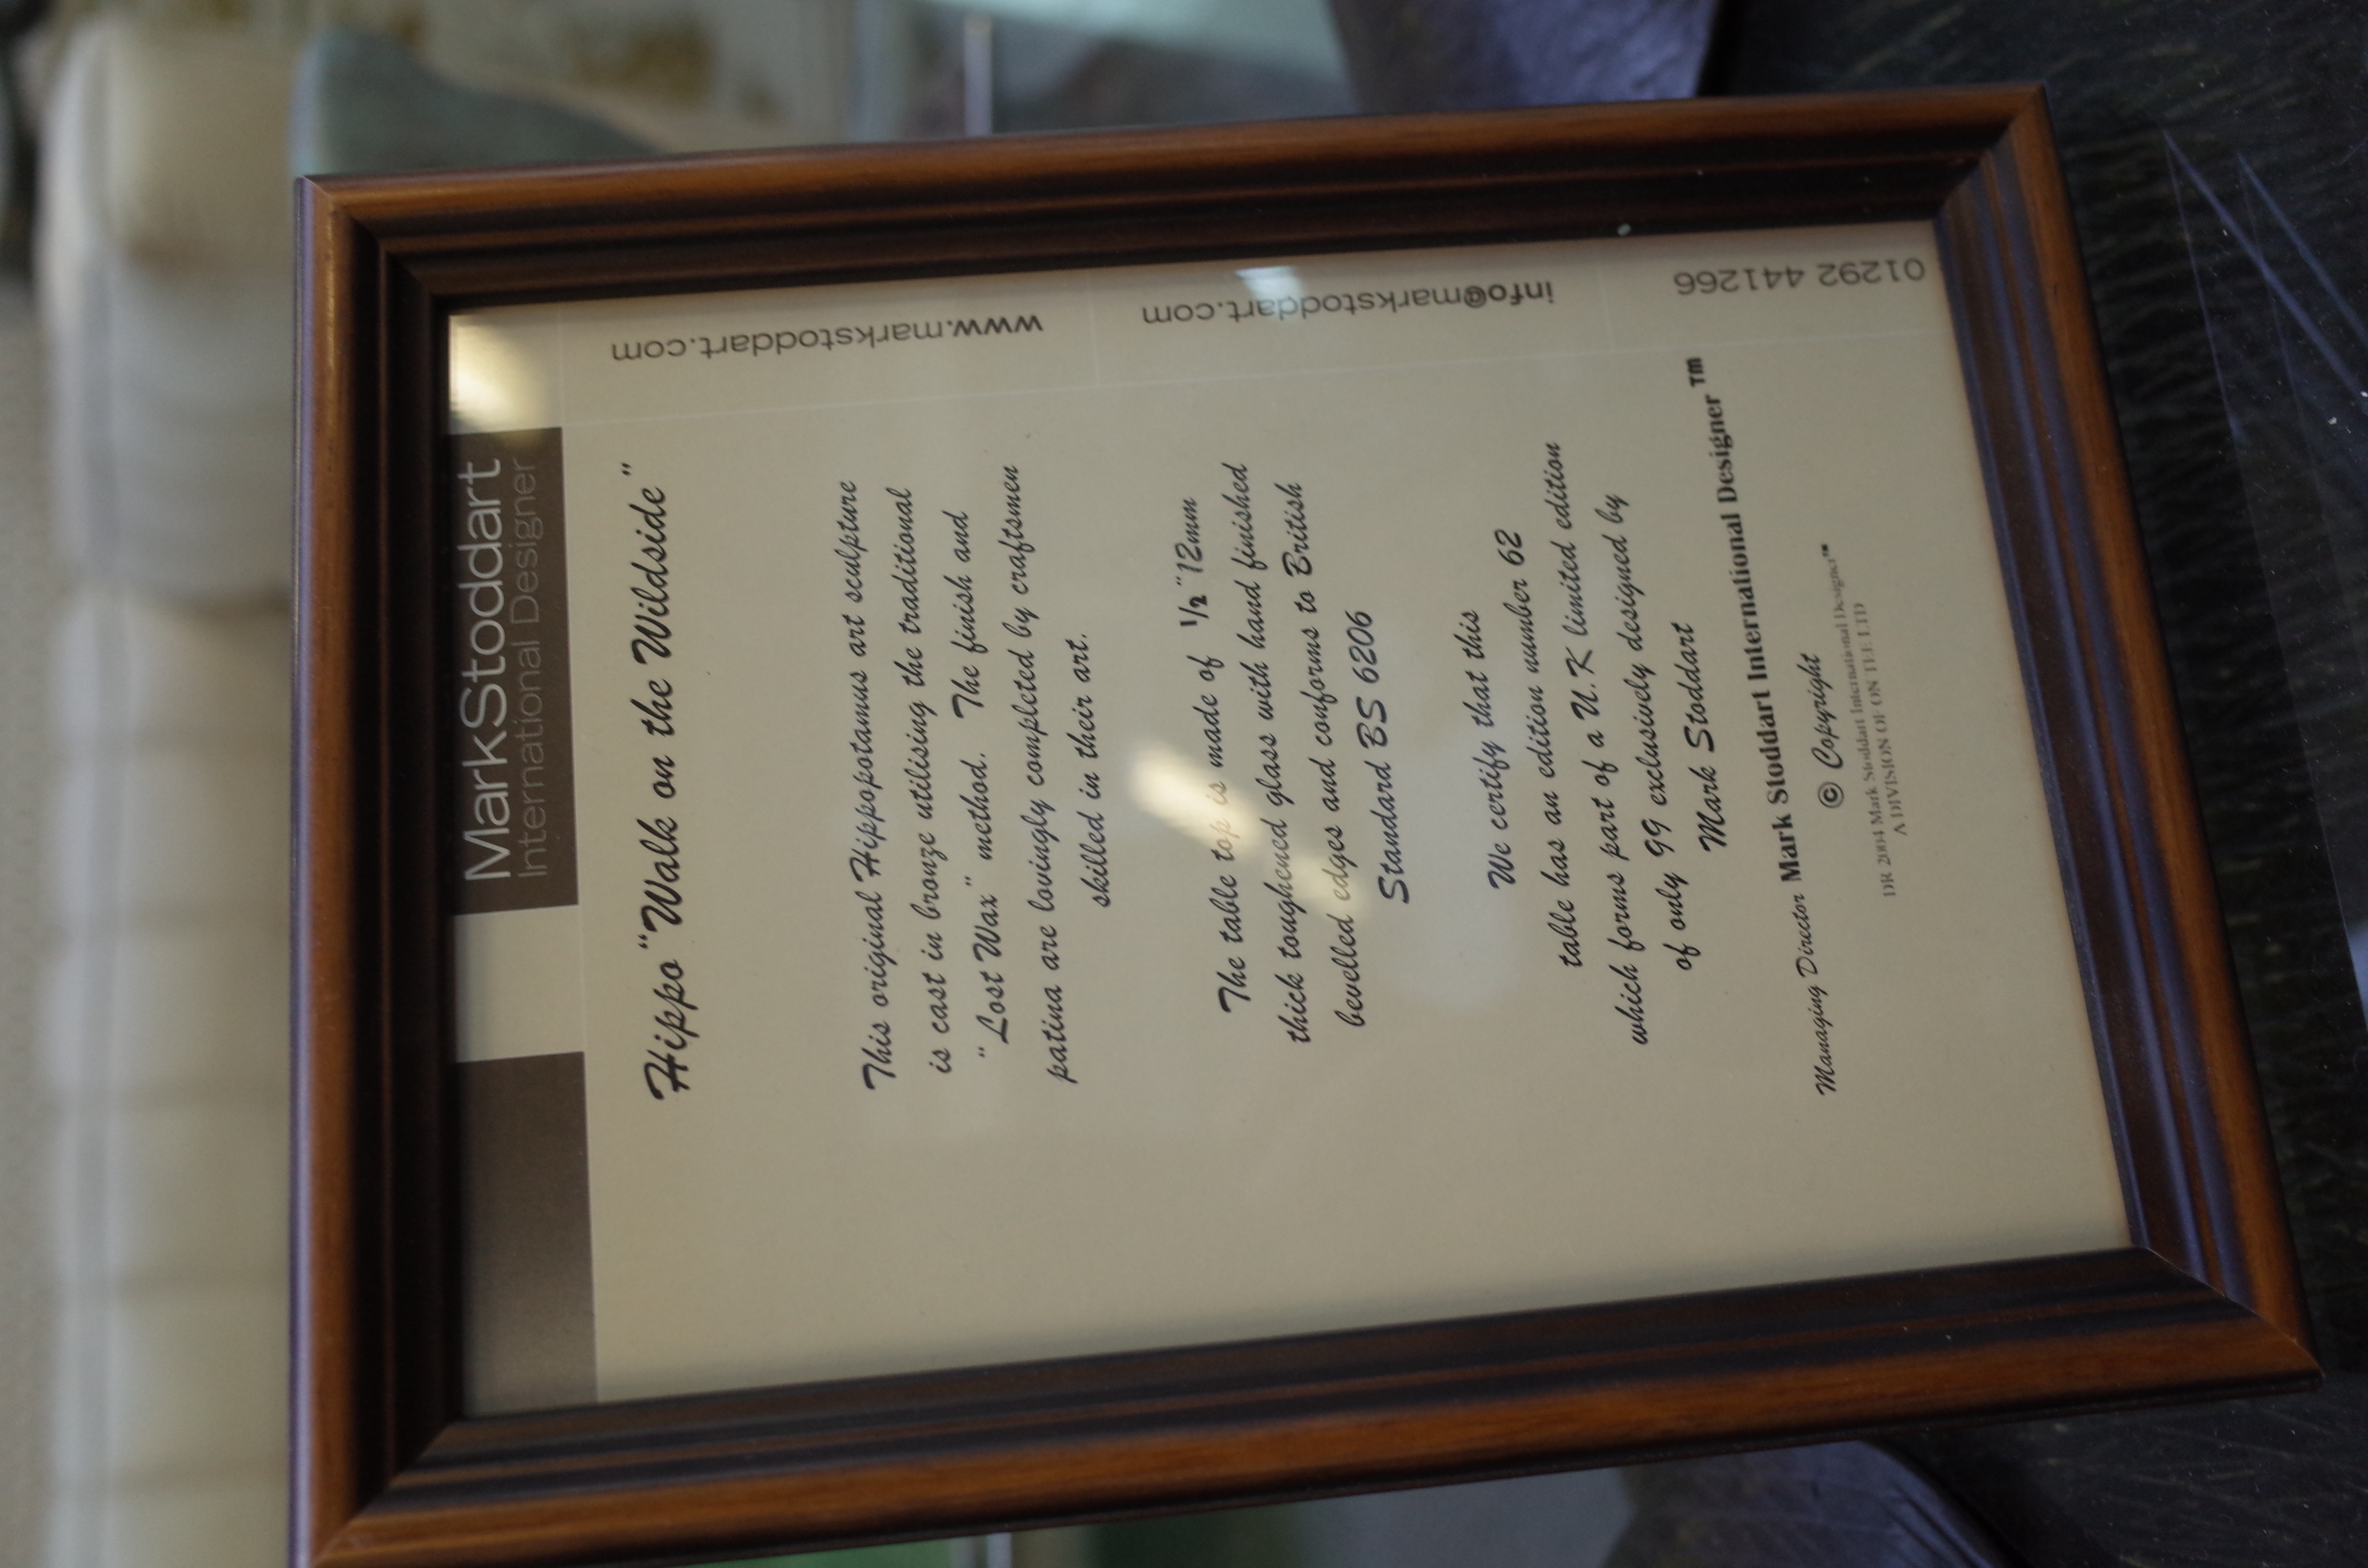 MarkStoddart
International Designer
Hippo "Walk on the Wildside"
This original Hippopotamus art sculpture
is cast in bronze utilising the traditional
"Lost Wax" method. The finish and
patina are lovingly completed by craftsmen
skilled in their art.
The table top is made of ½" 12mm
thick toughened glass with hand finished
bevelled edges and conforms to British
Standard BS 6206
We certify that this
table has an edition number 62
which forms part of a U.K limited edition
of only 99 exclusively designed by
Mark Stoddart
Managing Director Mark Stoddart International Designer™
© Copyright
DR 2004 Mark Stoddart International Designer™
A DIVISION OF ON TEE LTD
www.markstoddart.com
info@markstoddart.com
01292 441266